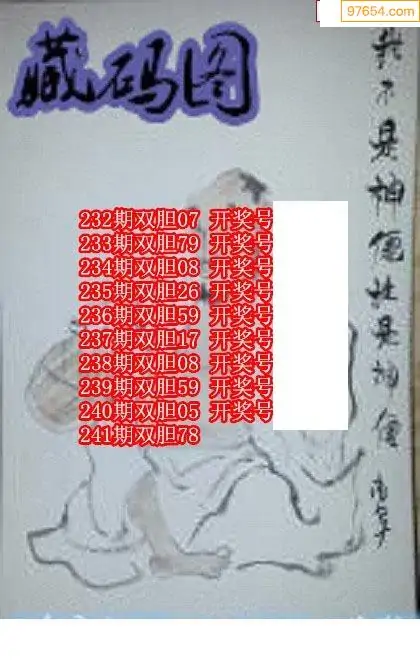 97654.com
藏码图
232期双胆07 开奖号
233期双胆79 开奖号
234期双胆08 开奖号
235期双胆26 开奖号
236期双胆59 开奖号
237期双胆17 开奖号
238期双胆08 开奖号
239期双胆59 开奖号
240期双胆05 开奖号
241期双胆78
不是神便是神僊